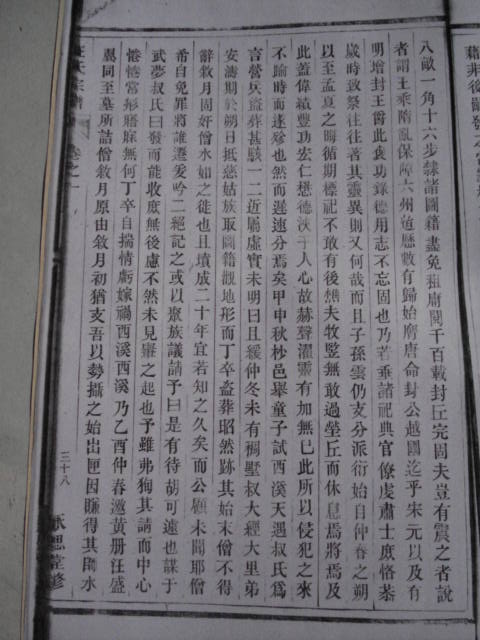 八畝一角十六步隸諸圖籍盡免租庸閱千百載封丘完固夫豈有震之者說
者謂王乘隋亂保障六州造歷數有歸始膺唐命封公越國迄乎宋元以及有
明增封王爵此袞功錄德用志不忘固也乃若垂諸祀典官僚虔肅士庶恪恭
歲時致祭往往著其靈異則又何哉而且子孫雲仍支分派衍始自仲春之朔
以至孟夏之晦循期標祀不敢有後樵夫牧豎無敢過塋丘而休息焉將焉及
此蓋偉績豐功宏仁懋德浹于人心故赫聲濯靈有加無已此所以侵犯之來
不踰時而遂殄也然而遲速分焉矣甲申秋杪邑舉童子試西溪天遇叔氏為
言營兵盜葬甚駭一二近屬虛實未明曰且緩仲冬未有禍墅叔大經大里弟
安濤期於朔日抵慈姑族取圖籍觀地形而丁卒盜葬昭然跡其始末僧不得
辭敘月固奸僧水如之徒也且墳成二十年宜若知之久矣而公願未聞耶僧
希自免罪將誰遷爰吟二絕記之或以聚族議請予曰是有待胡可遽也謀于
武夢叔氏曰發而能收庶無後慮不然未見獲之起也予雖弗狥其請而中心
惓惓當形寤寐無何丁卒自揣情虧嫁禍西溪西溪乃乙酉仲春邀黄册汪盛
翼同至墓所詰僧敘月原由敘月初猶支吾以勢攝之始出匣因賺得其師水
卷之一
三十八